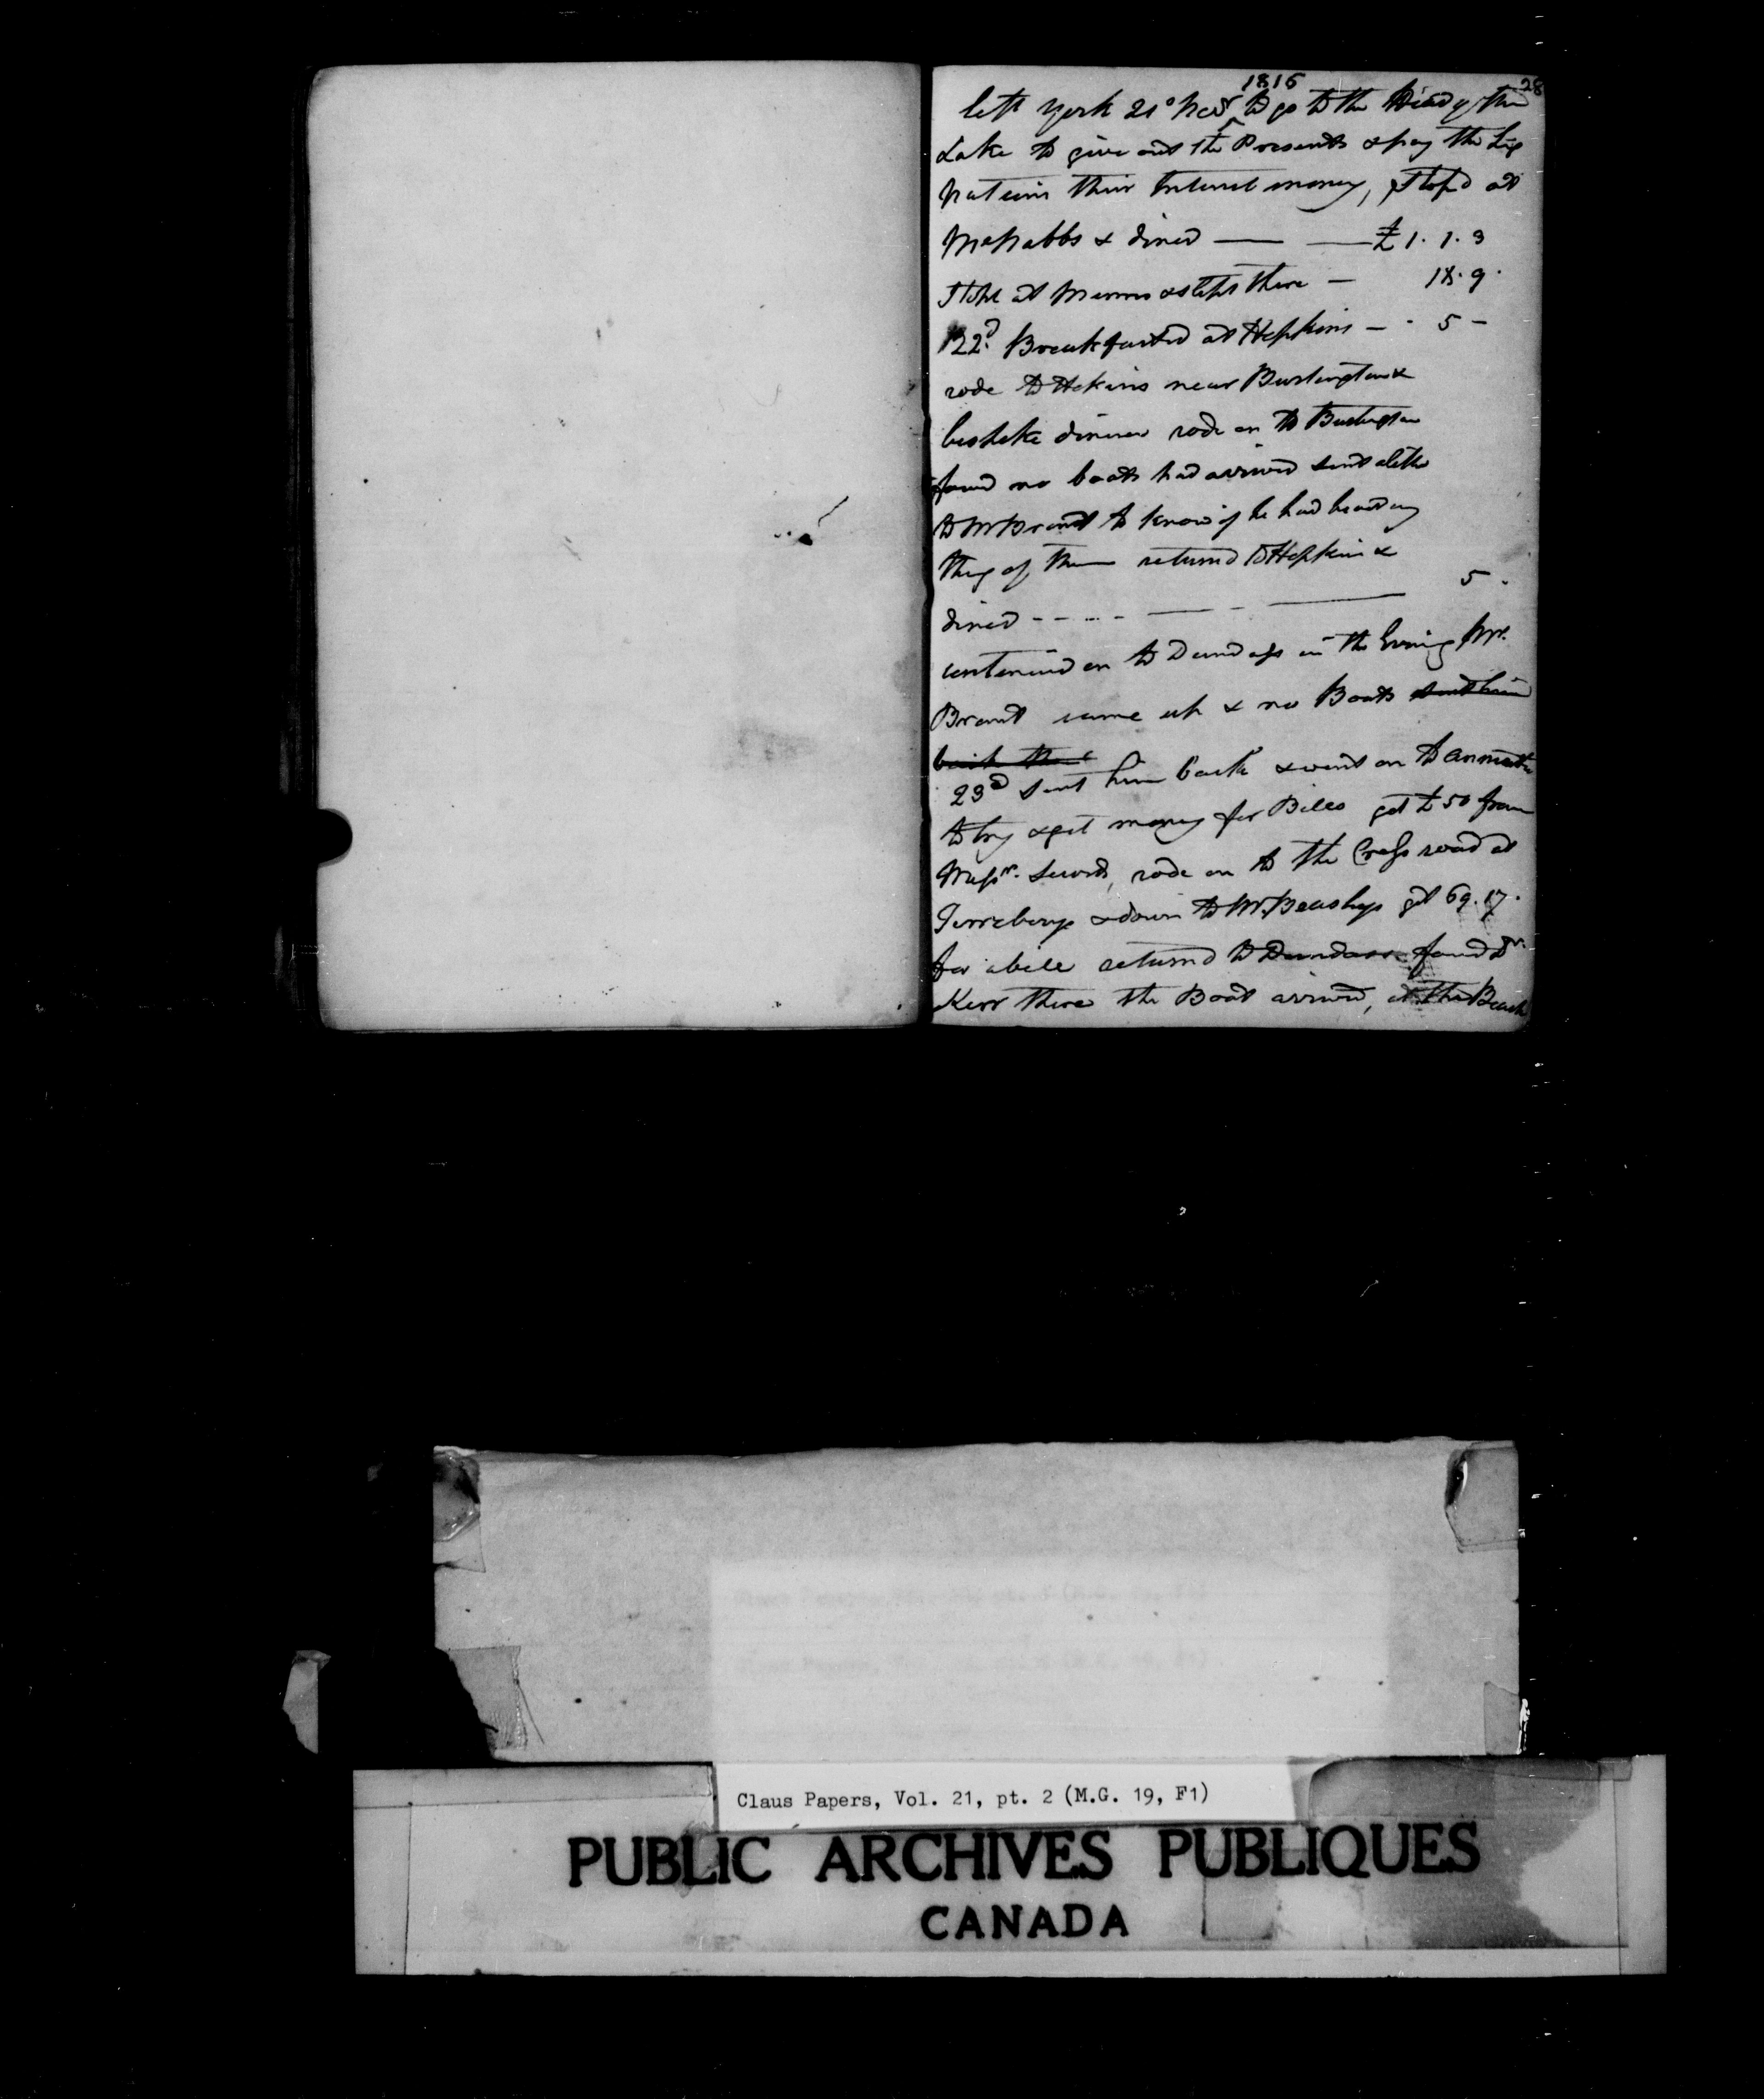 28
1816
left York 21st Novr to go to the Head of the
Lake to give out the Presents & pay the Six
Nations their Interest money, stopd at
McNabbs & dined — — £1. 1. 3
stopt at & slept there — 18. 9.
22d. Breakfasted at Hopkins — - 5 -
rode to Hokins near Burlington &
bespoke dinner rode on to Burlington
found no boats had arrived sent a letter
to Mr Brant to know if he had heard any
thing of them returned to Hopkins &
dined - - - - — - — 5 -
continued on to Dundass in the Evening Mr.
Brant came up & no Boats sent him
back the
23d sent him back & went on to
to try & get money for Bills got £50 from
Messrs. Secord, rode on to the Cross road at
Terreberrys & down to Mr. Beasleys got 69. 17.
for a bill returned to Dundass found Dr.
Kerr there the Boat arrived, at the Beach
Claus Papers, Vol. 21, pt. 2 (M.G. 19, F1)
PUBLIC ARCHIVES PUBLIQUES
CANADA